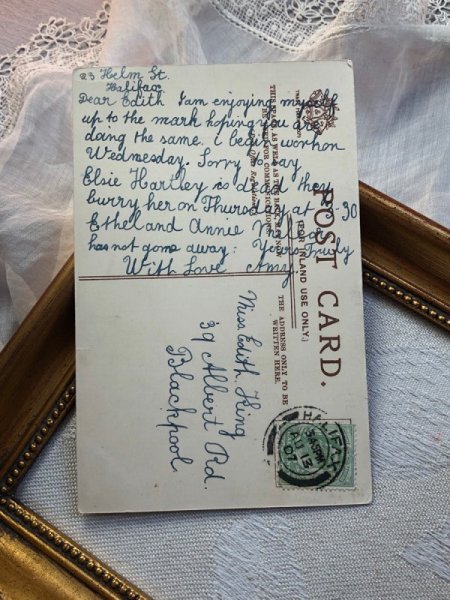 23 Helm St.
Halifax
Dear Edith I am enjoying myself
up to the mark hoping you are
doing the same. i begin work on
Wednesday. Sorry to say
Elsie Hartley is dead they
burry her on Thursday at 2-30
Ethel and Annie
has not gone away. Yours Truly
With Love Amy.
POST CARD.
(FOR INLAND USE ONLY.)
THIS SPACE, AS WELL AS THE BACK, MAY NOW
BE USED FOR COMMUNICATIONS.
(Post Office Regulation).
THE ADDRESS ONLY TO BE
WRITTEN HERE.
Miss Edith King
39 Albert Rd.
Blackpool
HALIFAX
AU 13
07